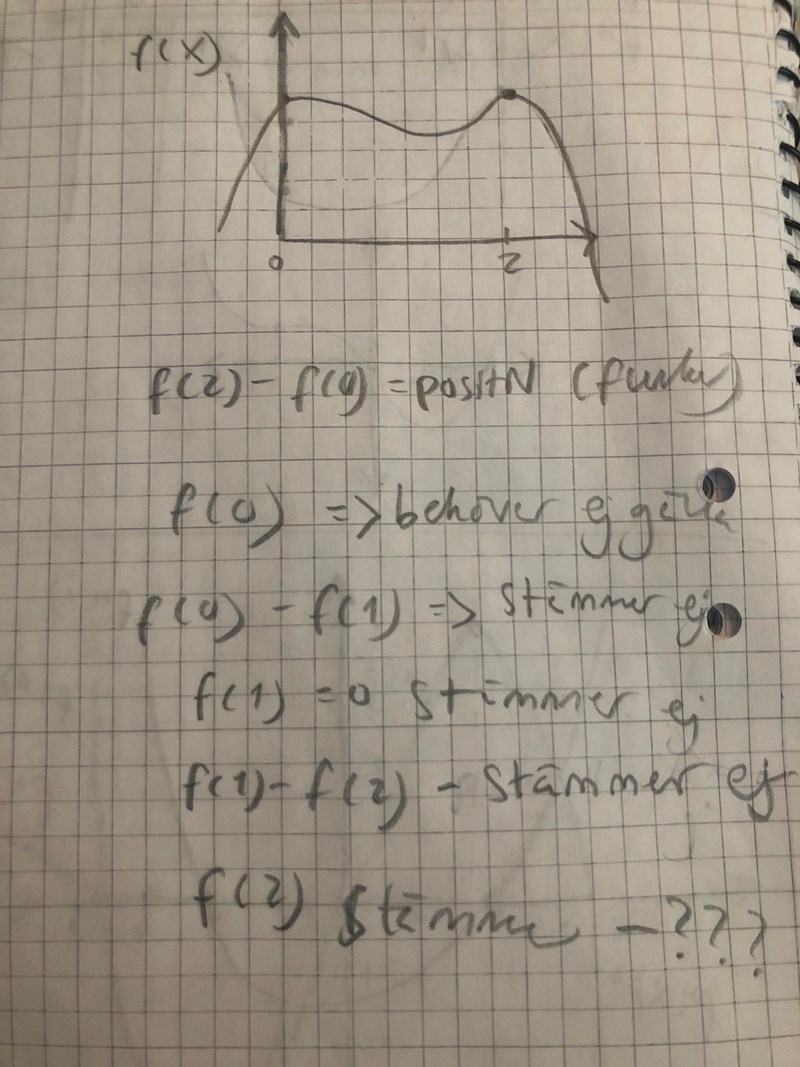 f(x)
0 2
f(2) - f(0) = positiv (funkar)
f(0) => behöver ej gälla
f(0) - f(1) => stämmer ej
f(1) = 0 stämmer ej
f(1) - f(2) - stämmer ej
f(2) stämmer - ???